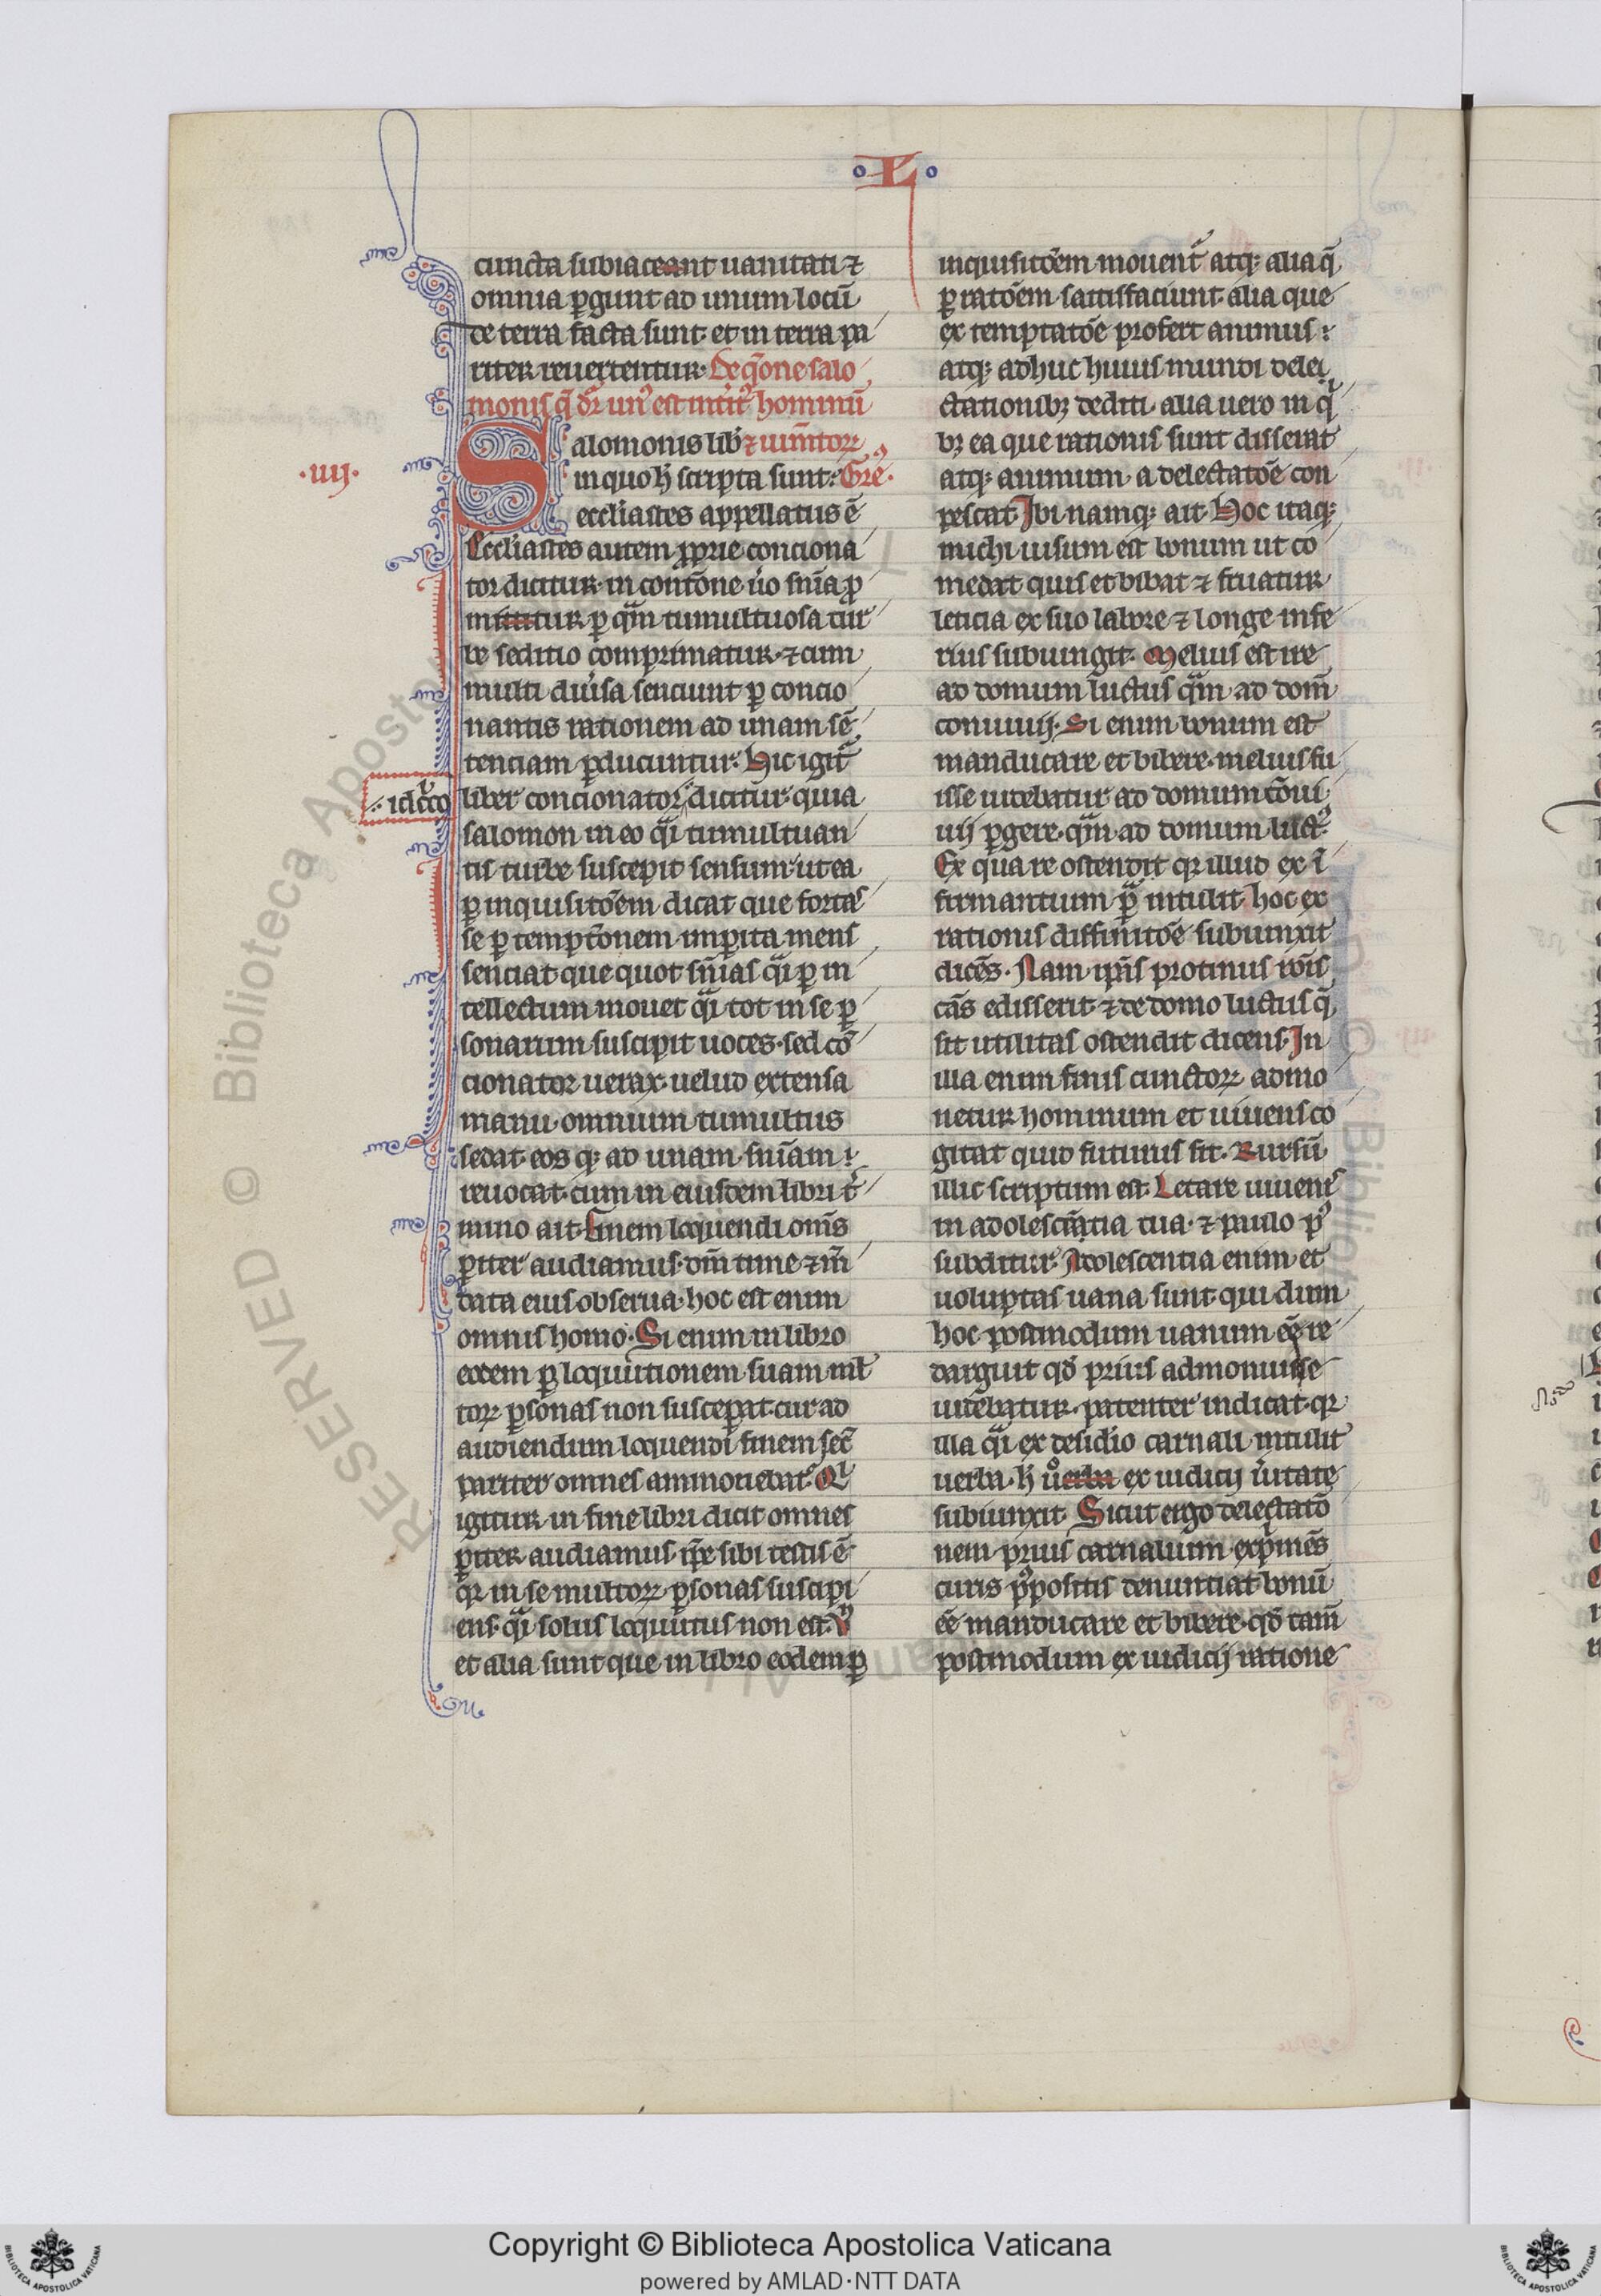 L
cuncta subiaceant uanitati ⁊
omnia ꝑgunt ad unum locū
de terra facta sunt et in terra pa
riter reuertentur. De q̄one salo
monis q̄ dr̄ un᾽ est int̄it᾽ hominū
Salomonis lib̄ ⁊ ium̄toꝝ
.iiij.
in quo h̄ scripta sunt: Gre᾽.
eccl̄iastes appellatus ē
Eccl̄iastes autem ꝓprie conciona
tor dicitur. in contōne ũo sn̄ia ꝓ
mittitur ꝑ qᵃm tumultuosa tur
be seditio comprimatur. ⁊ cum
multi diũsa senciunt ꝑ concio
nantis rationem ad unam sē
tenciam ꝑducuntur. Hic igit̄
.. idcc̄o
liber concionator dicitur quia
salomon in eo qᵃi tumultuan
tis turbe suscepit sensum. ut ea
ꝑ inquisitōem dicat que fortas
se ꝑ tempt̄onem imꝑita mens
senciat. que quot sn̄ias qᵃi ꝑ in
tellectum mouet qᵃi tot in se ꝑ
sonarum suscipit uoces. sed cō
cionator uerax uelud extensa
manu omnium tumultus
sedat eos qꝫ ad unam sn̄iam
reuocat. cum in eiusdem libri t̄
mino ait. Finem loquendi om̄s
ꝑiter audiamus. dm̄ time ⁊ m̄
data eius obserua. hoc est enim
omnis homo. Si enim in libro
eodem ꝑ loquutionem suam ml̄
toꝝ ꝑsonas non susceꝑat. cur ad
audiendum loquendi finem sec̄
pariter omnes ammonebat. Qⁱ
igitur in fine libri dicit omnes
ꝑiter audiamus ip̄e sibi testis ē
qꝛ in se multoꝝ ꝑsonas suscipi
ens. qᵃi solus loquutus non est. Vn̄
et alia sunt que in libro eodem ꝑ
inquisitōem mouent᾽ atqꝫ alia q̄
ꝑ ratōem satisfaciunt. alia que
ex temptatōe profert animus
atqꝫ adhuc huius mundi delec
ctationibꝫ dediti. alia uero in qⁱ
bꝫ ea que rationis sunt disserat
atqꝫ animum a delectatōe con
pescat. Ibi namqꝫ ait. Hoc itaqꝫ
michi uisum est bonum ut co
medat quis et bibat ⁊ fruatur
leticia ex suo labore ⁊ longe infe
rius subiungit. Melius est ire
ad domum luctus qᵃm ad dom̄
conuiuij. Si enim bonum est
manducare et bibere. melius fu
isse uidebatur ad domum cōui
uij ꝑgere. qᵃm ad domum luct᾽.
Ex qua re ostendit qꝛ illud ex ī
firmantium pᵃ intulit. hoc ex
rationis diffinitōe subiunxit
dicēs. Nam ip̄is protinus rōis
cās edisserit ⁊ de domo luctus q̄
sit utilitas ostendit dicens. In
illa enim finis cunctoꝝ admo
netur hominum et uiuens co
gitat quid futurus sit. Rursū
illic scriptum est. Letare iuuenis
in adolescn̄tia tua. ⁊ paulo p᾽
subditur. Adolescentia enim et
uoluptas uana sunt. qui dum
hoc postmodum uanum eē re
darguit qđ prius admonuisse
uidebatur. patenter indicat. qꝛ
illa qᵃi ex desidio carnali intulit
uerba. h̄ ũo uerba ex iudicij ũitate
subiunxit. Sicut ergo delectatō
nem prius carnalium exp̄mēs
curis ppositis denuntiat bonū
eē manducare et bibere. qđ tam̄
postmodum ex iudicij ratione
Copyright © Biblioteca Apostolica Vaticana
powered by AMLAD·NTT DATA